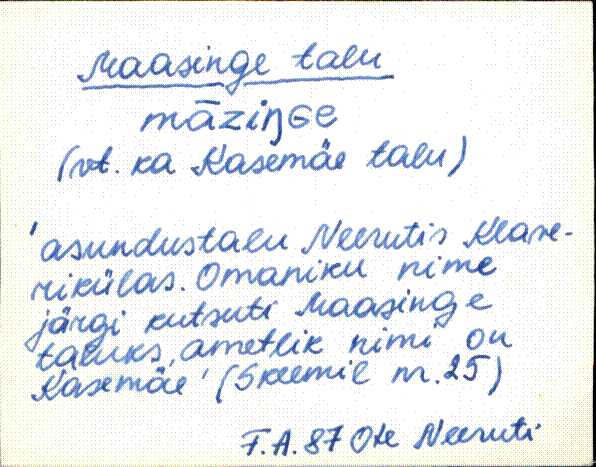 Maasinge talu
māziŋGe
(vt. ka Kasemäe talu)
'asundustalu Neerutis Klase-
rikülas. Omaniku nime
järgi kutsuti Maasinge
taluks, ametlik nimi on
Kasemäe' (Skeemil nr. 25)
F.A. 87 Ote Neeruti